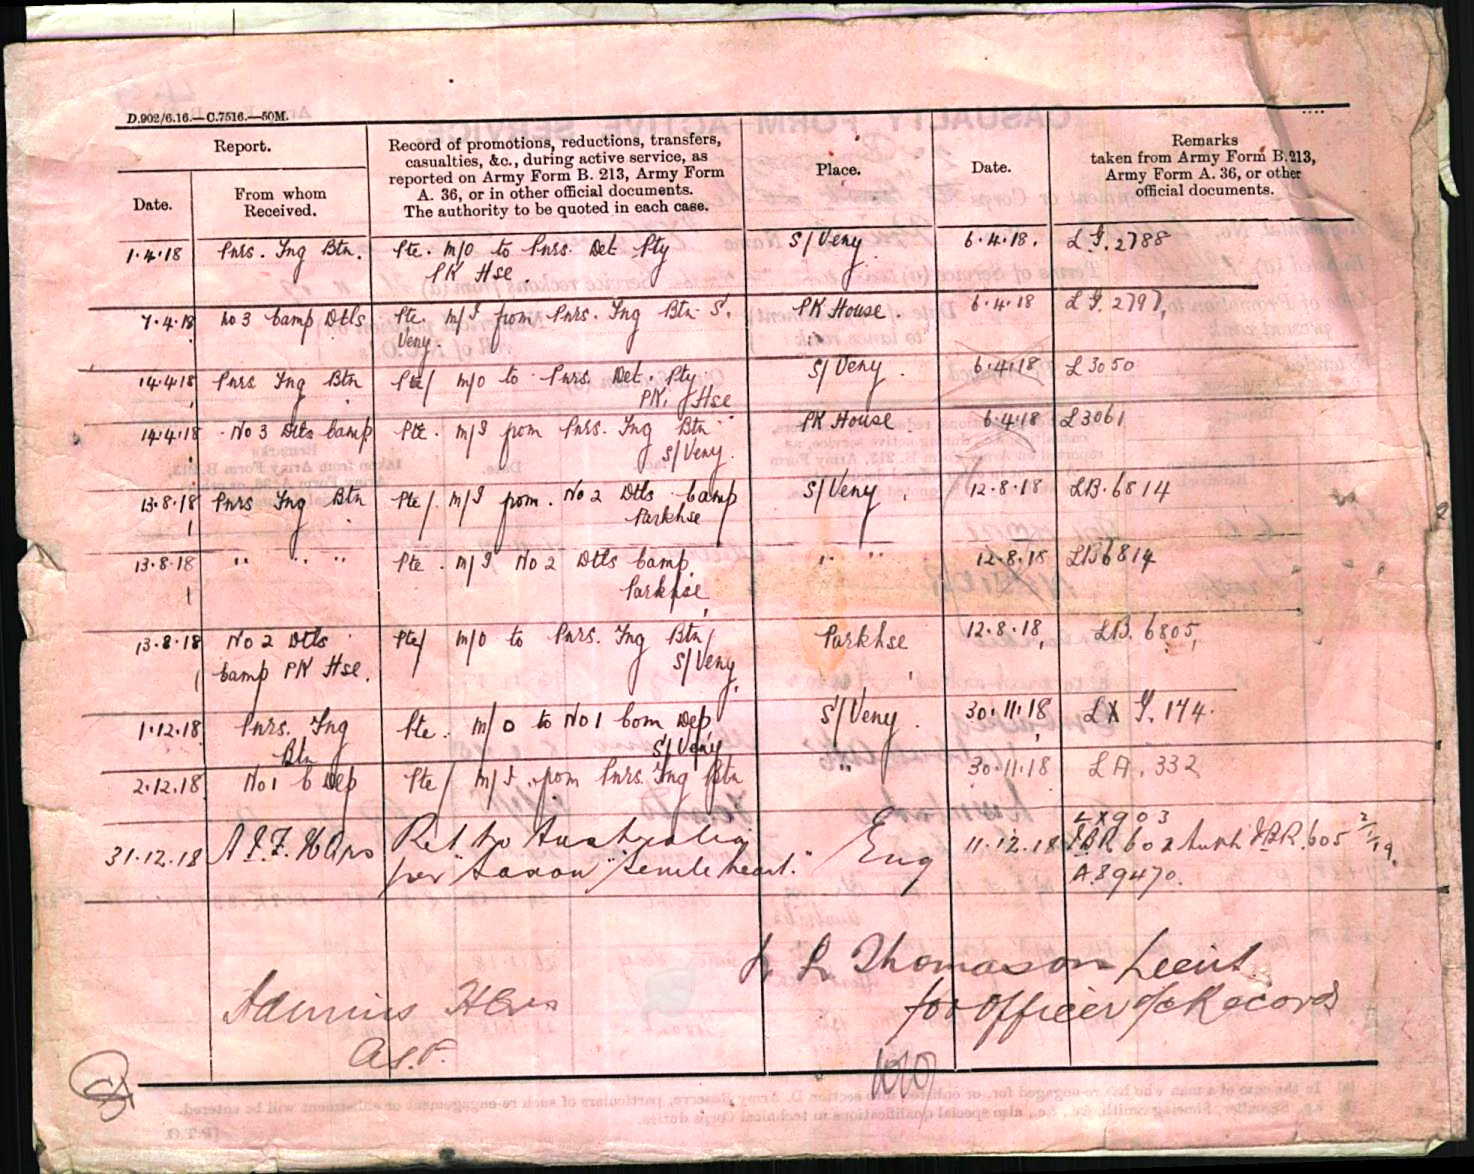 D.902/6.16.—C.7516.—50M.
Report.
Date.
From whom
Received.
Record of promotions, reductions, transfers,
casualties, &c., during active service, as
reported on Army Form B. 213, Army Form
A. 36, or in other official documents.
The authority to be quoted in each case.
Place.
Date.
Remarks
taken from Army Form B.213,
Army Form A. 36, or other
official documents.
1.4.18 Pnrs. Tng Btn. Pte. M/O to Pnrs. Det Pty S/Veny 6.4.18. L.J. 2788
PK Hse.
7.4.18 No 3 Camp Dtls Pte. M/I from Pnrs. Tng Btn S. PK House. 6.4.18 L.J. 2797,
Veny.
14.4.18 Pnrs Tng Btn Pte/ M/O to Pnrs. Det. Pty S/Veny. 6.4.18 L3050
PK. Hse
14.4.18 No 3 Dtls Camp Pte. M/I from Pnrs. Tng Btn PK House 6.4.18 L3061
S/Veny.
13.8.18 Pnrs Tng Btn Pte/. M/I from. No 2 Dtls Camp S/Veny 12.8.18 LB.6814
Parkhse
13.8.18 " " " Pte. M/I No 2 Dtls Camp " " 12.8.18 LB6814
Parkhse
13.8.18 No 2 Dtls Pte/ M/O to Pnrs. Tng Btn Parkhse 12.8.18, LB. 6805,
Camp PK Hse. S/Veny
1.12.18 Pnrs. Tng Pte. M/O to No 1 Com Dep S/Veny. 30.11.18, LX J. 174.
Btn S/Veny
2.12.18 No 1 C Dep Pte/ M/I from Pnrs. Tng Btn " 30.11.18 LA. 332
LX903
31.12.18 A.I.F. HQrs Ret to Australia Eng 11.12.18 602 605 2/1/19.
per "Saxon" heart." A.89470.
Thomason Lieut
for Officer i/c Records
Admins HQrs
A.I.F.